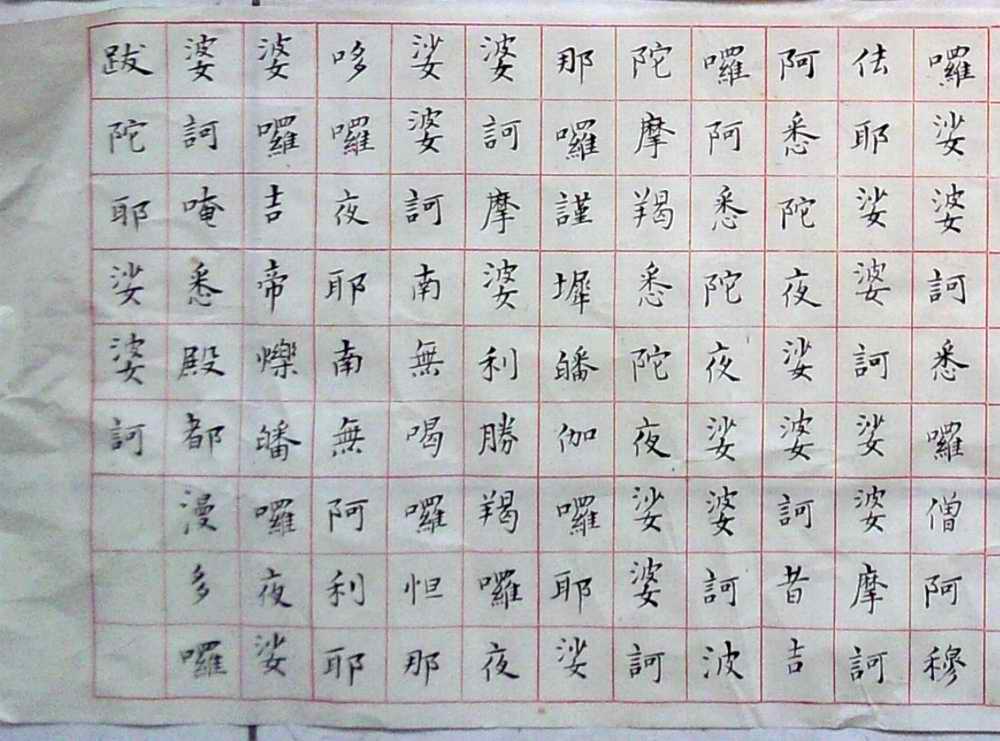 囉娑婆訶悉囉僧阿穆
佉耶娑婆訶娑婆摩訶
阿悉陀夜娑婆訶者吉
囉阿悉陀夜娑婆訶波
陀摩羯悉陀夜娑婆訶
那囉謹墀皤伽囉耶娑
婆訶摩婆利勝羯囉夜
娑婆訶南無喝囉怛那
哆囉夜耶南無阿利耶
婆囉吉帝爍皤囉夜娑
婆訶唵悉殿都漫多囉
跋陀耶娑婆訶